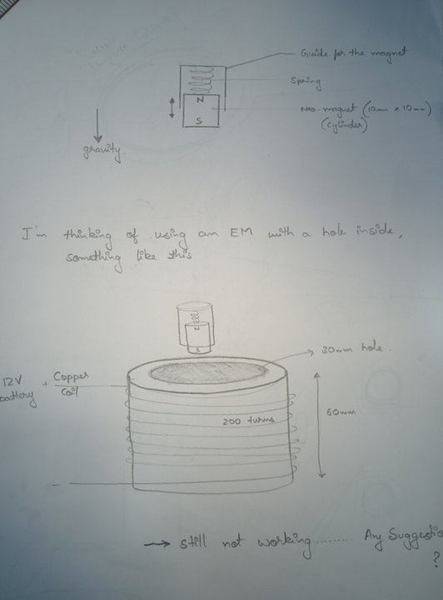 Guide for the magnet
Spring
N
Neo-magnet (10mm x 10mm)
(cylinder)
S
gravity
I'm thinking of using an EM with a hole inside,
something like this
N
S
30mm hole
12V
battery
+
Copper
Coil
200 turns
60mm
-
→ still not working........ Any Suggestio
?